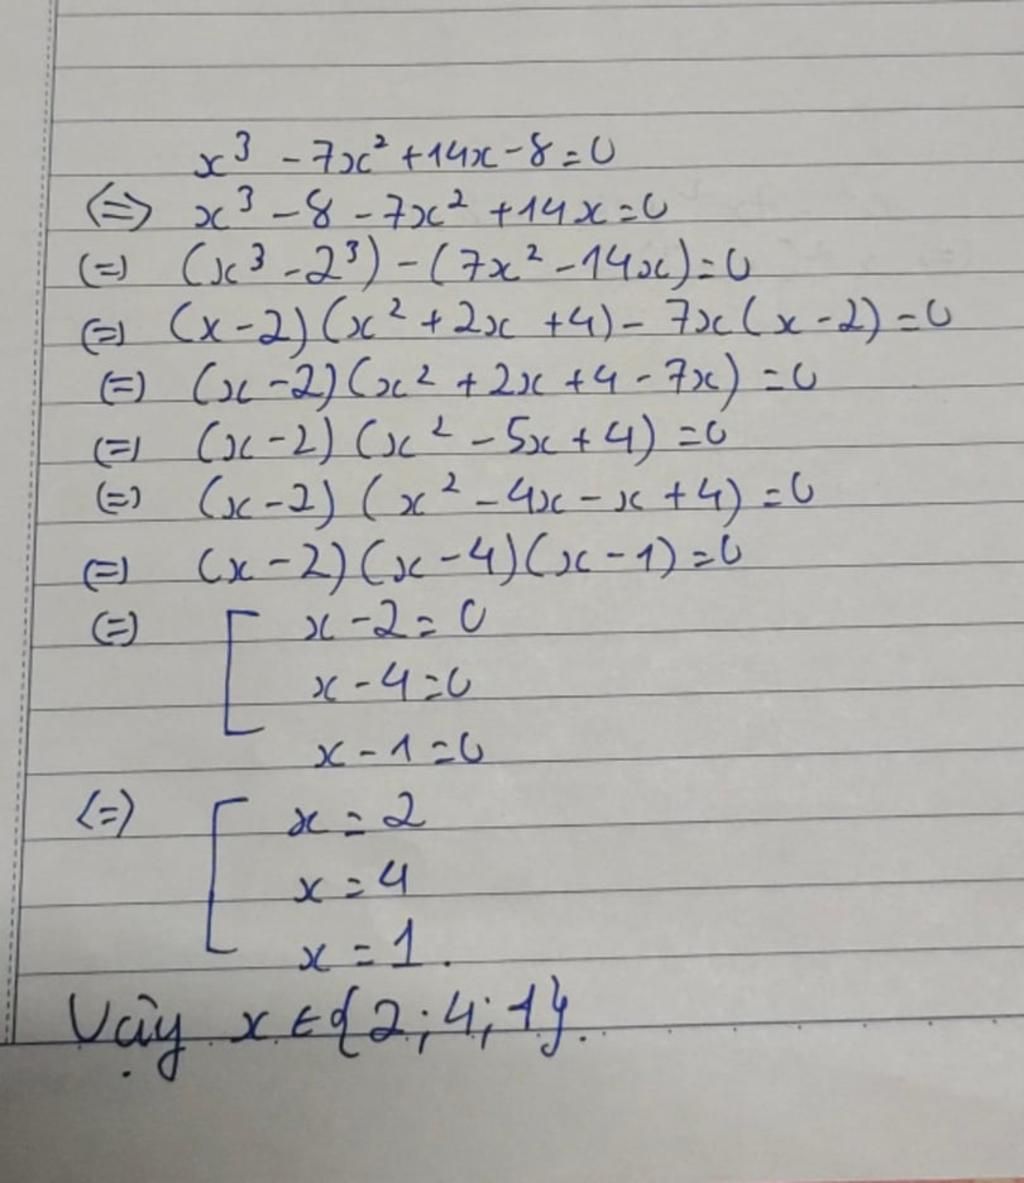 x³ - 7x² + 14x - 8 = 0
<=> x³ - 8 - 7x² + 14x = 0
(=) (x³ - 2³) - (7x² - 14x) = 0
(=) (x - 2)(x² + 2x + 4) - 7x(x - 2) = 0
(=) (x - 2)(x² + 2x + 4 - 7x) = 0
(=) (x - 2)(x² - 5x + 4) = 0
(=) (x - 2)(x² - 4x - x + 4) = 0
(=) (x - 2)(x - 4)(x - 1) = 0
(=) [ x - 2 = 0
x - 4 = 0
x - 1 = 0
<=) [ x = 2
x = 4
x = 1.
Vậy x ∈ {2; 4; 1}.